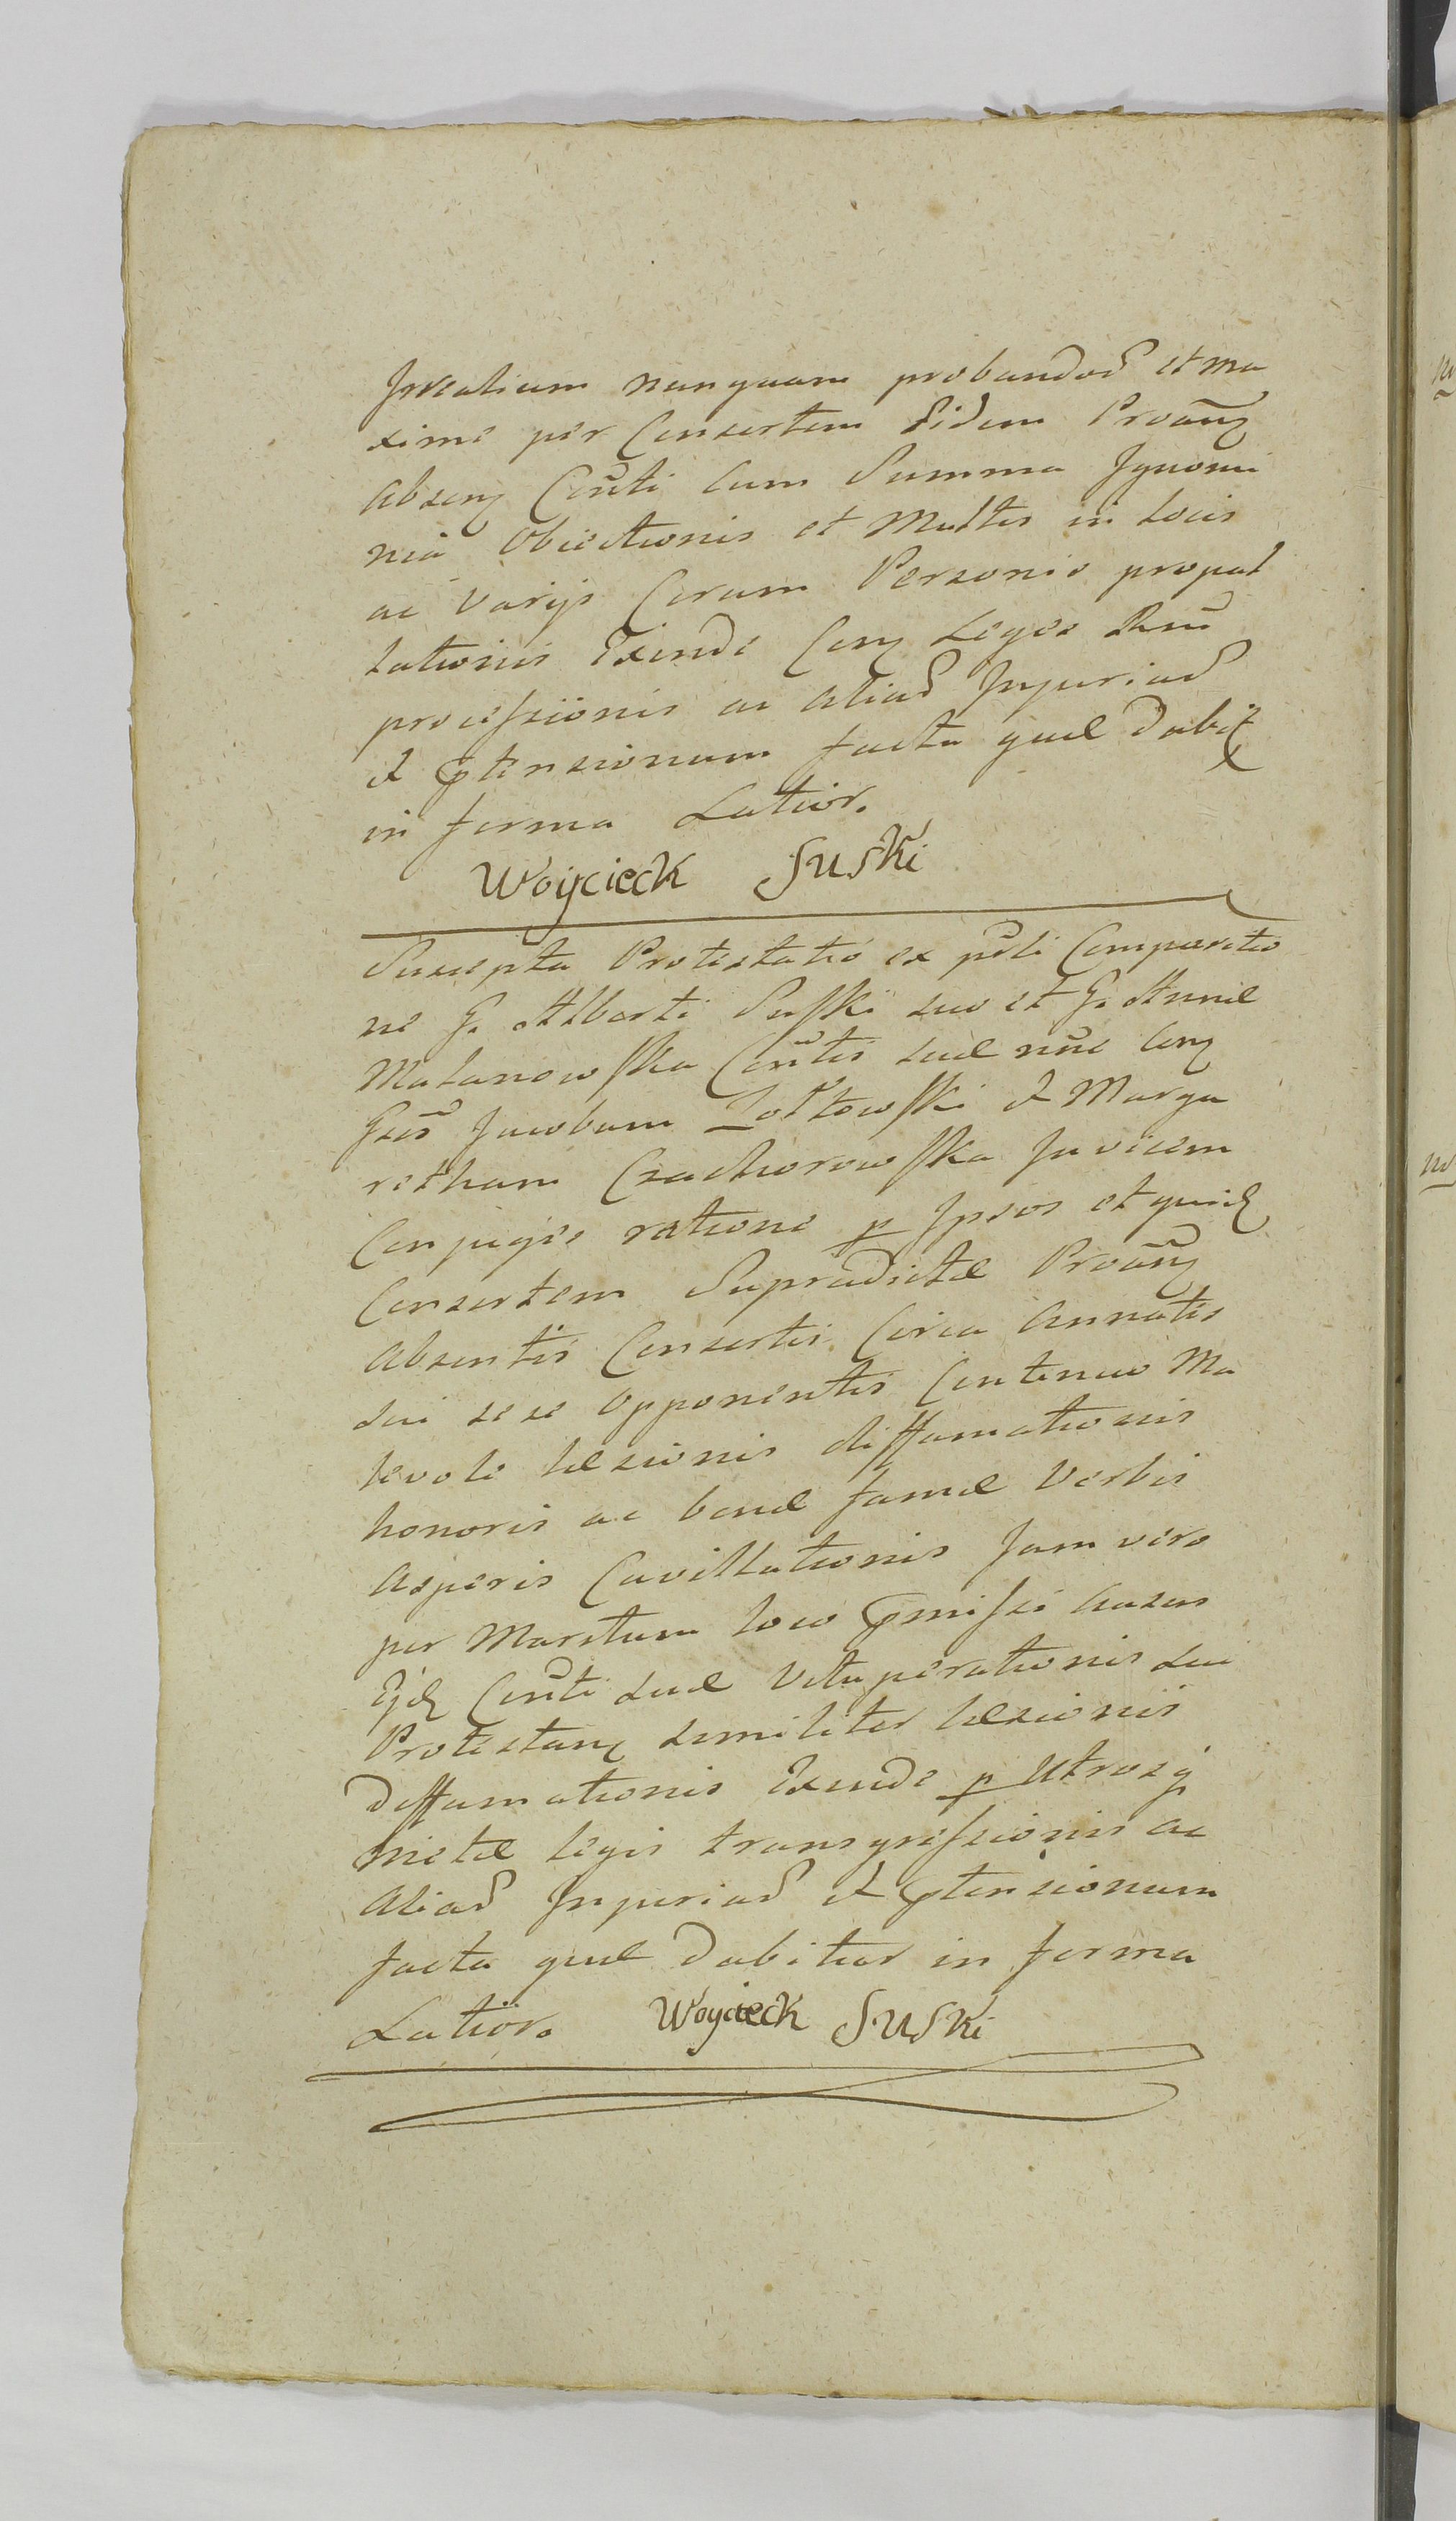 Irrealium nunquam probandoȓ et ma
xime per Consortem Eidem Proāng
absenȝ Con̄ti cum Summa Ignomi
nia Obiectionis et Multis in Locis
ac Varijs Coram Personis propal
lationis Exinde Conȝ Leges Reni
processionis ac aliaȓ Injuriaȓ
et ptensionum facta quæ dabitȓ
in forma Latior.
Woyciech Suski
Suscepta Protestatio ex psōli Comparitio
ne G. Alberti Suski suo et G. Annæ
Malanowska Con̄tis suæ nōe Conȝ
Gsōs Jacobum Zołtowski et Marga
retham Czachorowska Invicem
Conjuges ratione p Ipsos et quidȝ
Consortem Supradictæ Proāng
absentis Consortis Circa Annatis
sui sese opponentis Continuo Ma
levole læsionis diffamationis
honoris ac bonæ famæ Verbis
asperis Cavillationis Jam vero
per Maritum loco pmissi ausus
Ejdȝ Con̄ti suæ Vituperationis sui
Protestanȝ similiter læsionis
Deffamationis Exinde p Utrosq
metæ legis transgressionis ac
aliaȓ Injuriaȓ et ptensionum
facta quæ dabitur in forma
Latior. Woyciech Suski